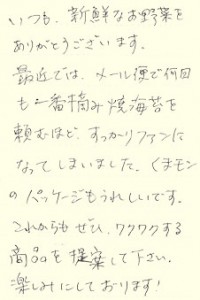 いつも、新鮮なお野菜を
ありがとうございます。
最近では、メール便で何回
も一番摘み焼海苔を
頼むほど、すっかりファンに
なってしまいました。くまモン
のパッケージもうれしいです。
これからもぜひ、ワクワクする
商品を提案して下さい。
楽しみにしております!